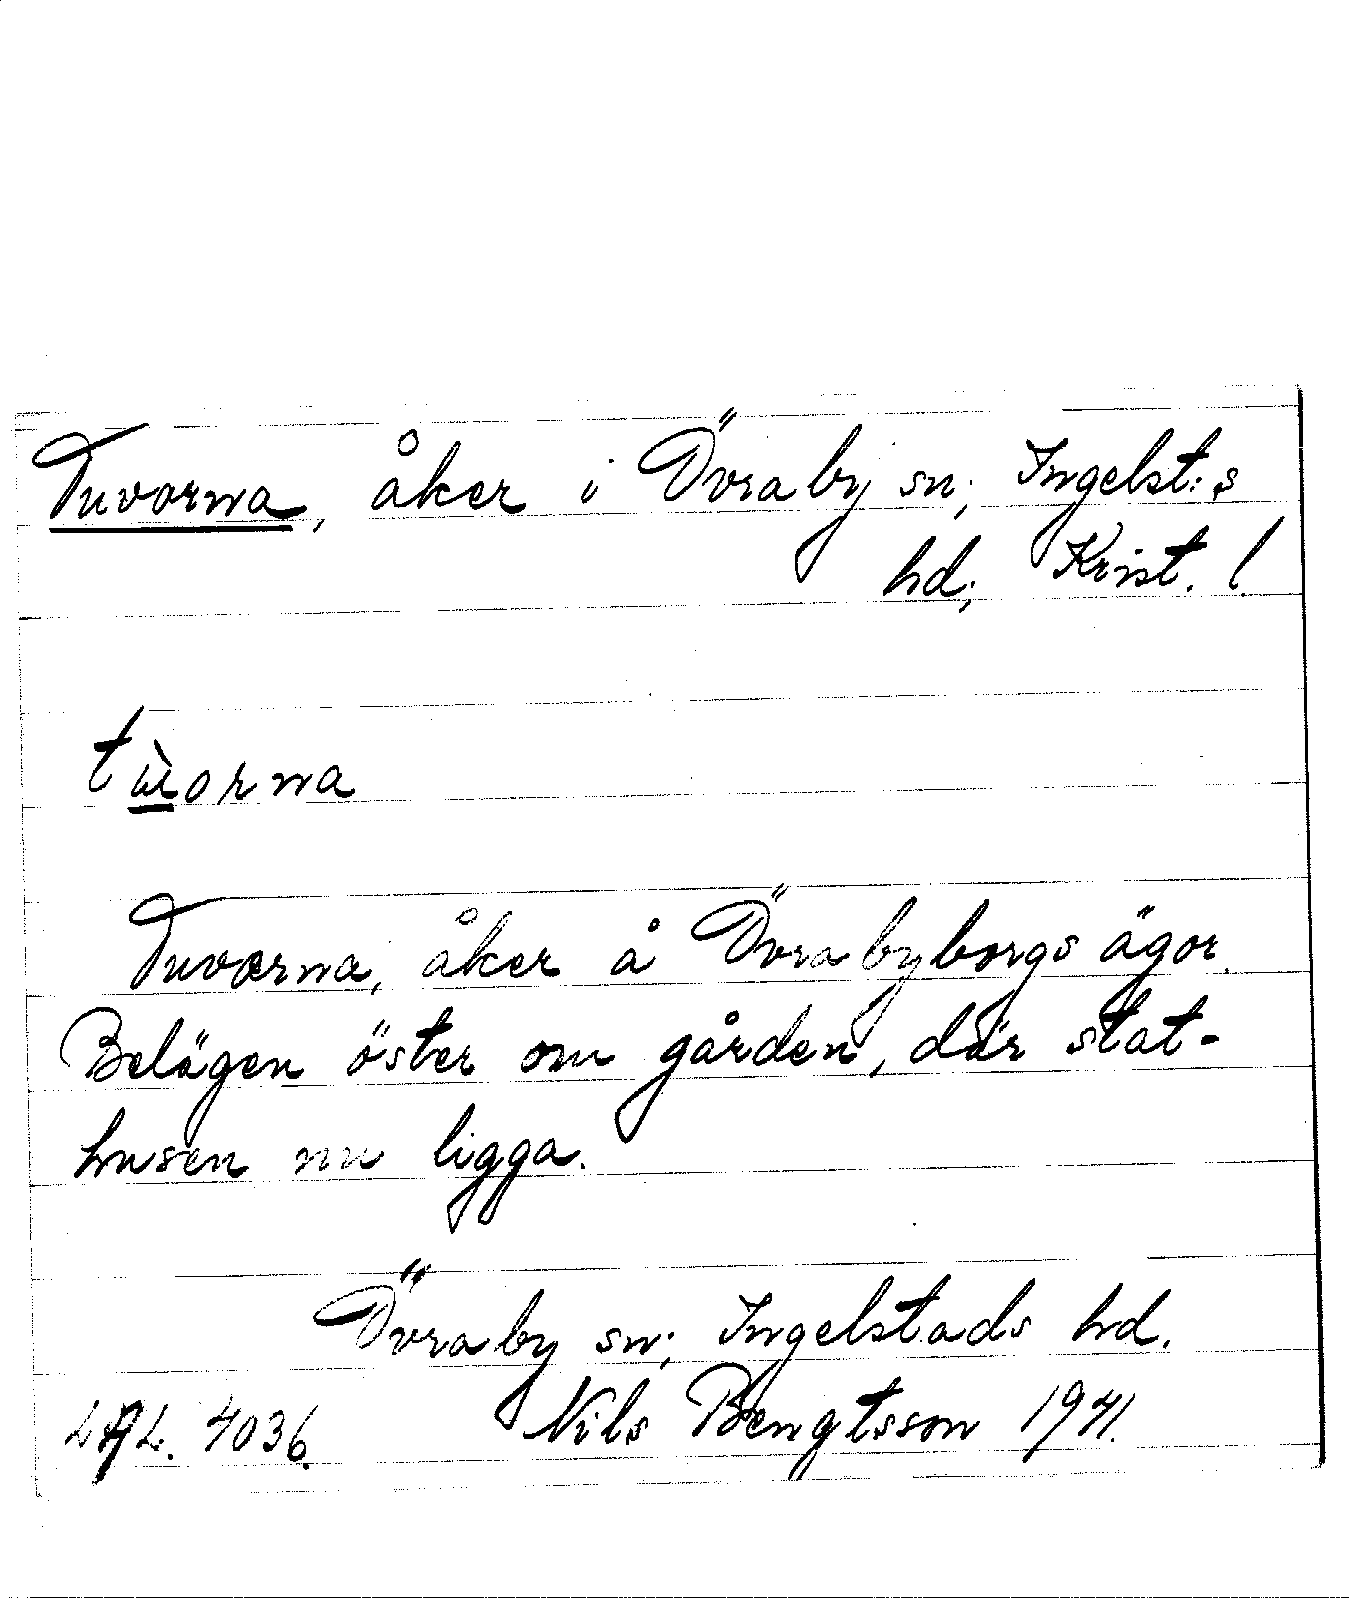 Tuvorna, åker i Övraby sn; Ingelst:s
hd; Krist. l.
tùorna
Tuvorna, åker å Övrabyborgs ägor.
Belägen öster om gården, där stat-
husen nu ligga.
Övraby sn; Ingelstads hd.
LAL. 4036. Nils Bengtsson 1941.